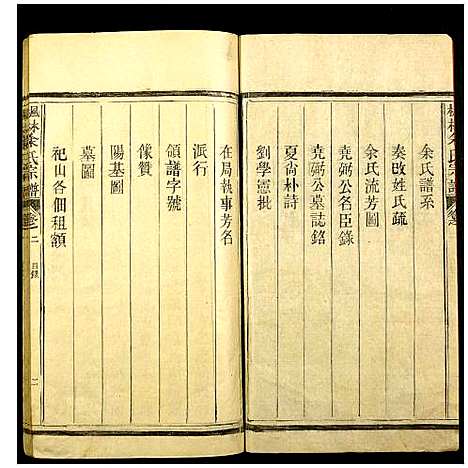 余氏譜系
奏改姓氏疏
余氏流芳圖
堯弼公名臣錄
堯弼公墓誌銘
夏尚朴詩
劉學憲批
在局執事芳名
派行
領譜字號
像贊
陽基圖
墓圖
祀山各佃租額
楓林余氏宗譜
卷之二
目錄
二